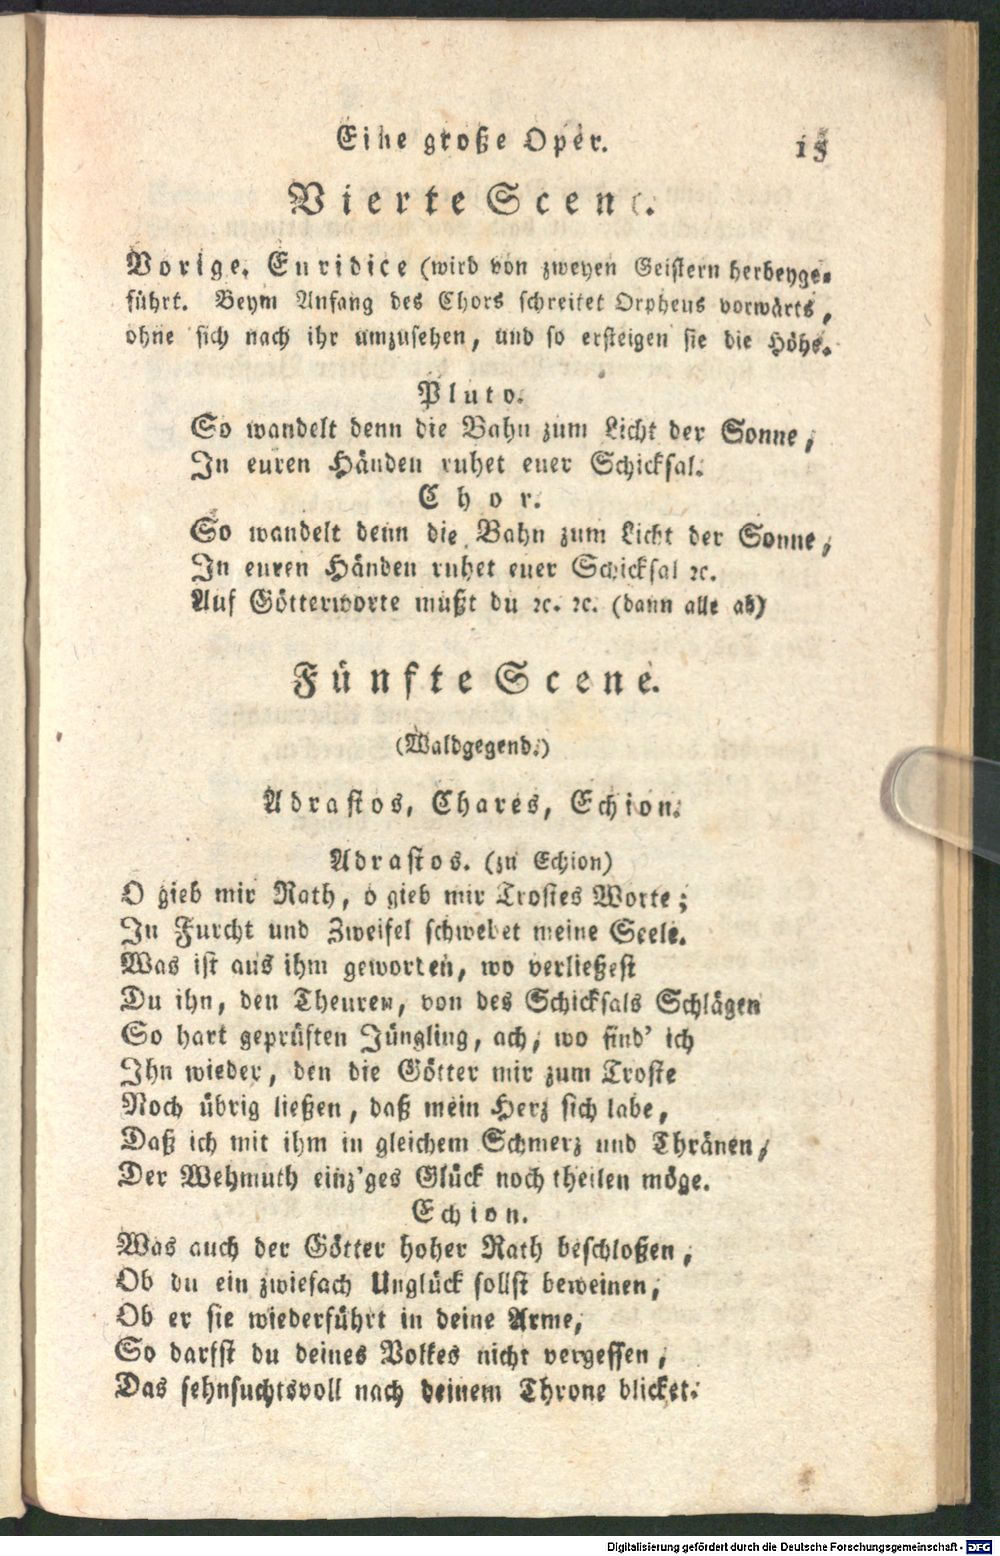 Eine große Oper. 15
Vierte Scene.
Vorige. Euridice (wird von zweyen Geistern herbeyge-
führt. Beym Anfang des Chors schreitet Orpheus vorwärts,
ohne sich nach ihr umzusehen, und so ersteigen sie die Höhe.
Pluto.
So wandelt denn die Bahn zum Licht der Sonne,
In euren Händen ruhet euer Schicksal.
Chor.
So wandelt denn die Bahn zum Licht der Sonne,
In euren Händen ruhet euer Schicksal ꝛc.
Auf Götterworte mußt du ꝛc. ꝛc. (dann alle ab)
Fünfte Scene.
(Waldgegend.)
Adrastos, Chares, Echion.
Adrastos. (zu Echion)
O gieb mir Rath, o gieb mir Trostes Worte;
In Furcht und Zweifel schwebet meine Seele.
Was ist aus ihm geworden, wo verließest
Du ihn, den Theuren, von des Schicksals Schlägen
So hart geprüften Jüngling, ach, wo find' ich
Ihn wieder, den die Götter mir zum Troste
Noch übrig ließen, daß mein Herz sich labe,
Daß ich mit ihm in gleichem Schmerz und Thränen,
Der Wehmuth einz'ges Glück noch theilen möge.
Echion.
Was auch der Götter hoher Rath beschloßen,
Ob du ein zwiefach Unglück sollst beweinen,
Ob er sie wiederführt in deine Arme,
So darfst du deines Volkes nicht vergessen,
Das sehnsuchtsvoll nach deinem Throne blicket.
Digitalisierung gefördert durch die Deutsche Forschungsgemeinschaft - DFG